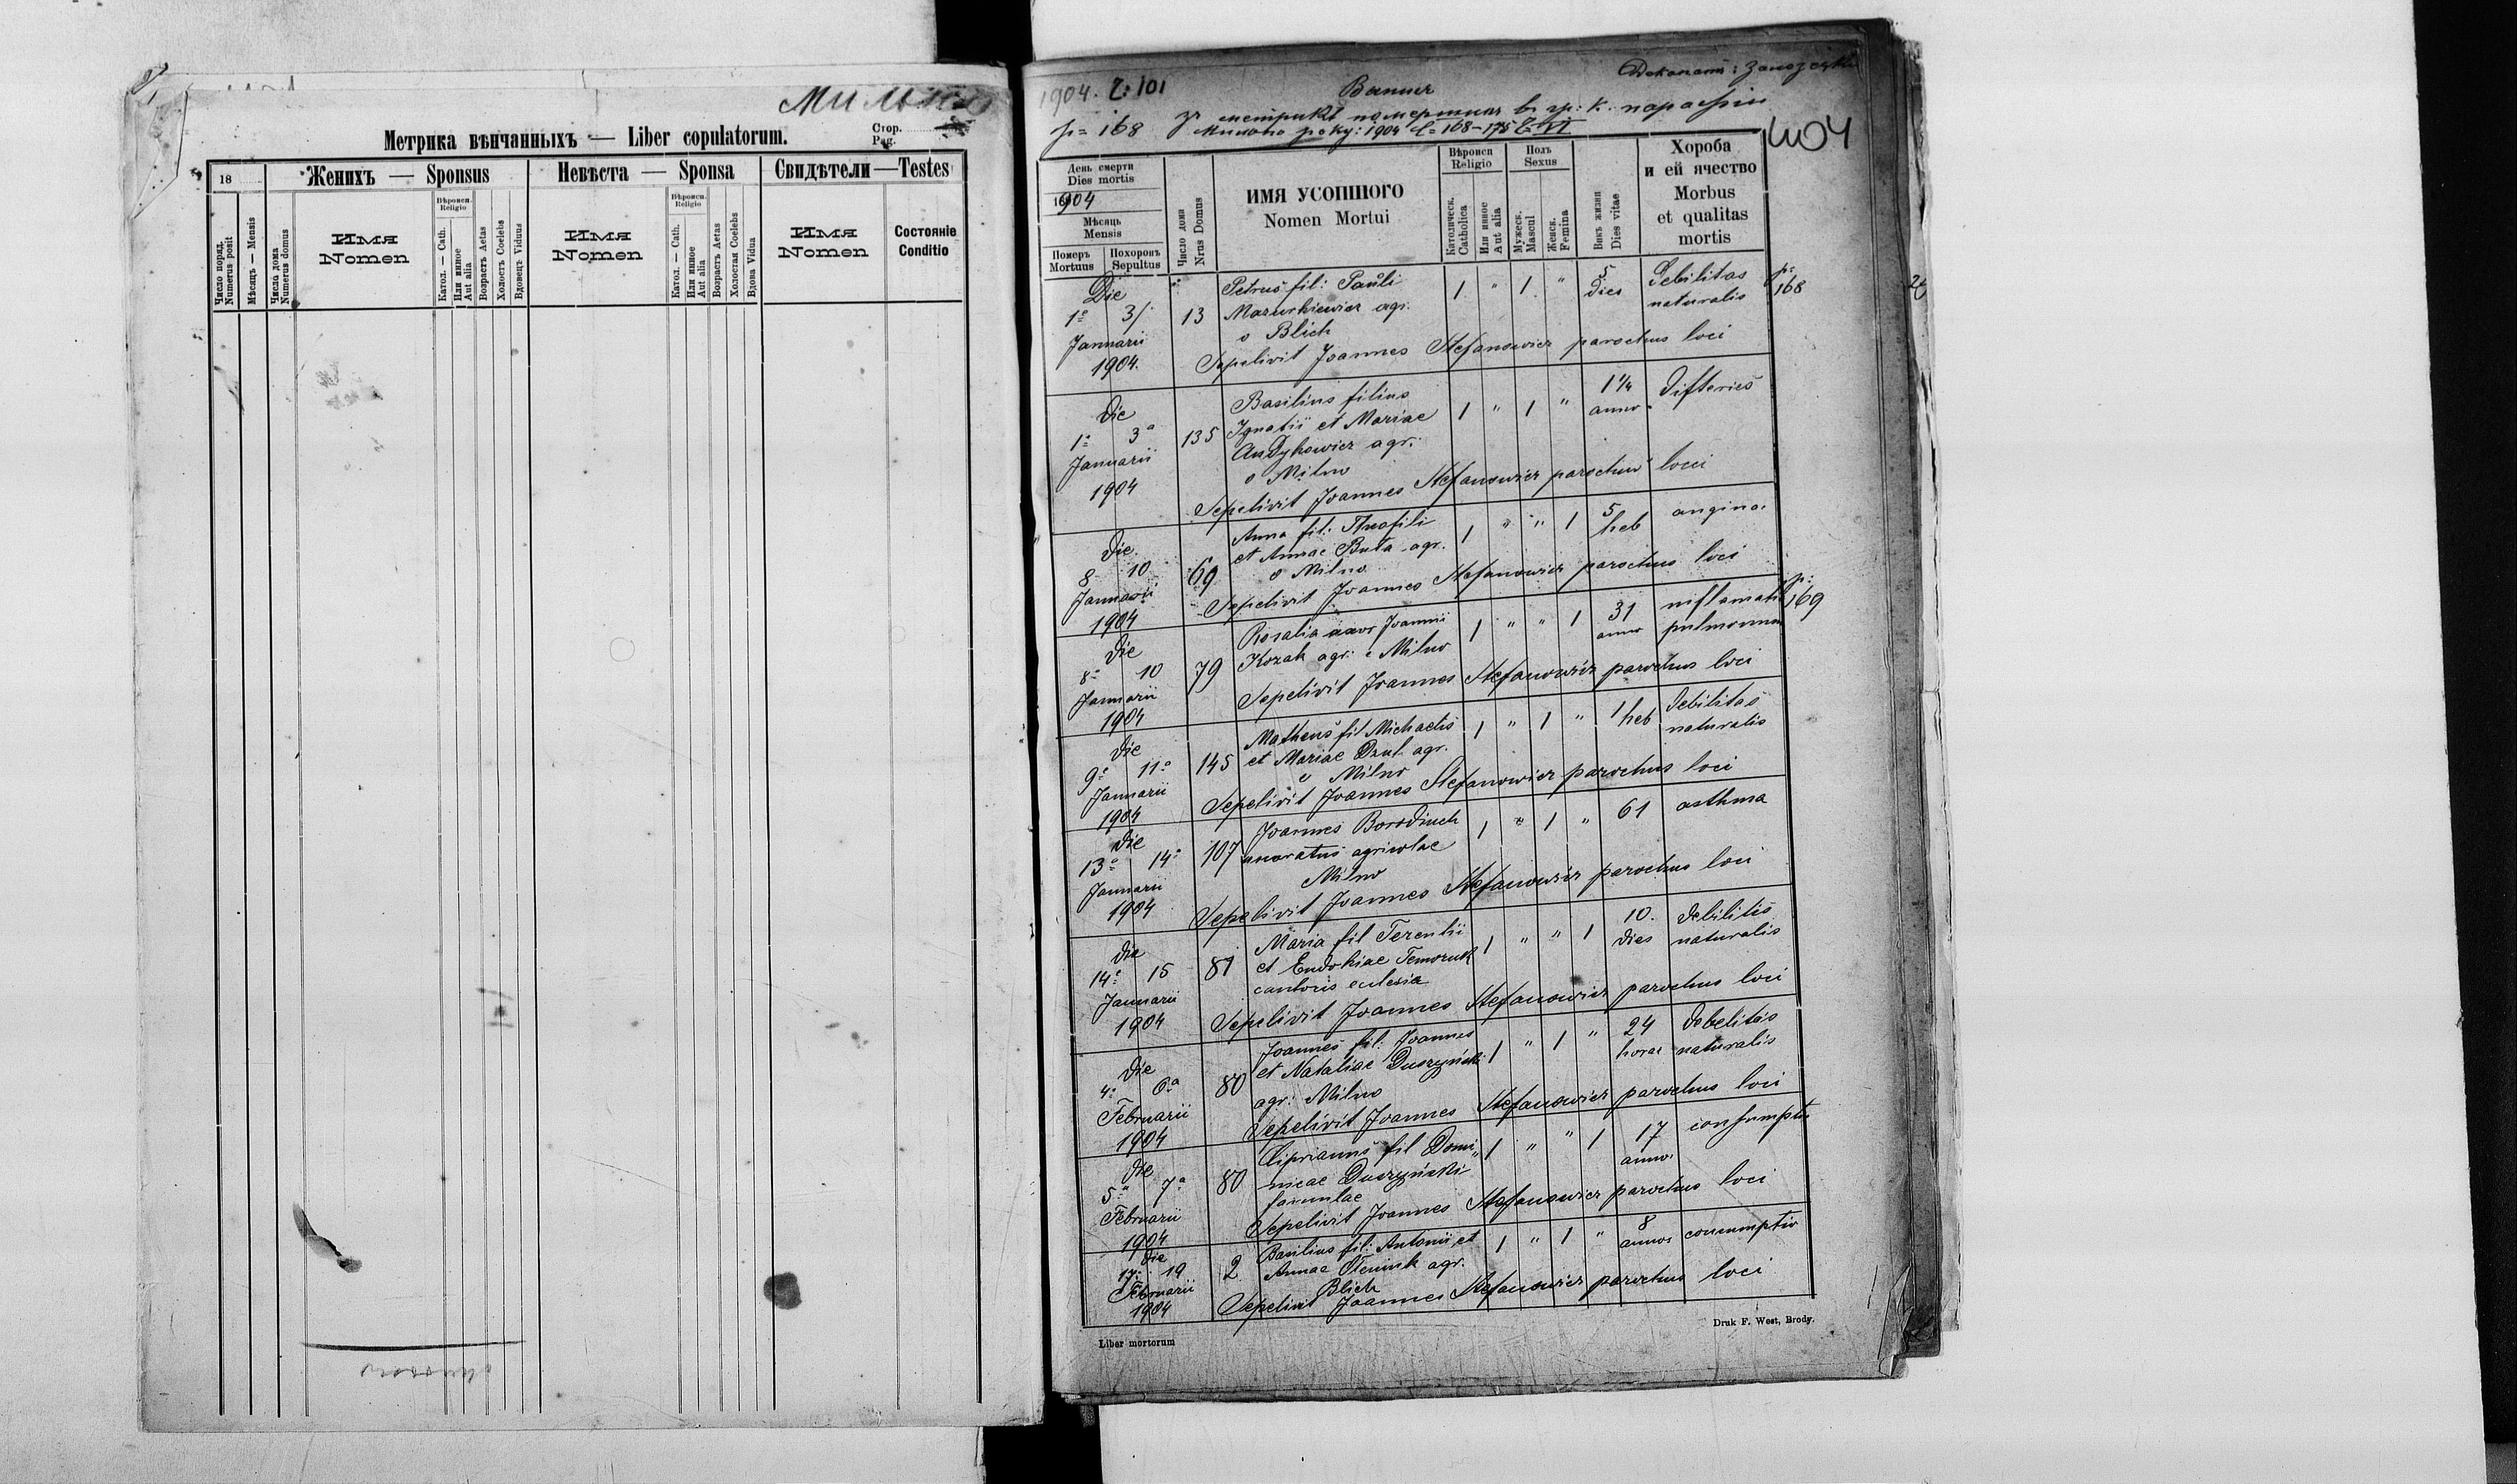 Мильно
Метрика вѣнчанныхъ — Liber copulatorum.
Стор.
Pag.
18
Женихъ — Sponsus
Невѣста — Sponsa
Свидѣтели — Testes
Число поряд.
Numerus posit
Мѣсяць — Mensis
Число дома
Numerus domus
Имя
Nomen
Вѣроисп.
Religio
Катол. — Cath.
Или инное
Aut alia
Возрастъ Aetas
Холостъ Coelebs
Вдовецъ Viduus
Имя
Nomen
Вѣроисп.
Religio
Катол. — Cath.
Или инное
Aut alia
Возрастъ Aetas
Холостая Coelebs
Вдова Vidua
Имя
Nomen
Состояніе
Conditio
1904. 2:101
p= 168
Dekanam:
зъ метрикъ помершихъ въ гр: к. парафіи
Мильно року: 1904 168-175
1404
День смерти
Dies mortis
1904
Мѣсяць
Mensis
Померъ
Mortuus
Похоронъ
Sepultus
Число дома
Nrus Domus
ИМЯ УСОПШОГО
Nomen Mortui
Вѣроисп
Religio
Католическ.
Catholica
Или инное
Aut alia
Полъ
Sexus
Мужеск.
Mascul
Женск.
Femina
Викъ жизни
Dies vitae
Хороба
и ей ячество
Morbus
et qualitas
mortis
Die 1º 3/. Januarii 1904. 13
Petrus fil: Pauli
Mazurkiewicz agr.
o Blich
1 " 1 " 5 dies Debilitas naturalis
p= 168
Sepelivit Joannes Stefanowicz parochus loci
Die 1º 3ª Januarii 1904 135
Basilius filius
Ignatii et Mariae
Andykowicz agr.
o Milno
1 " 1 " 1 1/4 anno difteries
Sepelivit Joannes Stefanowicz parochus loci
Die 8 10 Januarii 1904 69
Anna fil: Theofili
et Annae Buta agr.
o Milno
1 " " 1 5 heb angina
Sepelivit Joannes Stefanowicz parochus loci
Die 8º 10 Januarii 1904 79
Rosalia uxor Joannis
Kozak agr. e Milno
1 " " 1 31 anno
pulmonum
p: 169
Sepelivit Joannes Stefanowicz parochus loci
Die 9º 11º Januarii 1904 145
Matheus fil Michaelis
et Mariae Dzul agr.
e Milno
1 " 1 " 1 heb debilitas naturalis
Sepelivit Joannes Stefanowicz parochus loci
Die 13º 14º Januarii 1904 107
Joannes Borodiuch
uxoratus agricolae
Milno
1 " 1 " 61 asthma
Sepelivit Joannes Stefanowicz parochus loci
Die 14º 15 Januarii 1904 81
Maria fil Terentii
et Eudokiae Temoruk
cantoris eclesia
1 " " 1 10. dies debilitis naturalis
Sepelivit Joannes Stefanowicz parochus loci
Die 4º 6ª Februarii 1904 80
Joannes fil: Joannes
et Nataliae Duszyński
agr: Milno
1 " 1 " 24 horae debelitas naturalis
Sepelivit Joannes Stefanowicz parochus loci
Die 5º 7ª Februarii 1904 80
Ciprianus fil Domi-
nicae Duszyński
famulae
1 " " 1 17 anno. consumptio
Sepelivit Joannes Stefanowicz parochus loci
Die 17º 19 Februarii 1904 2
Basilius fil: Antonii et
Annae Oleniuk agr.
Blich
1 " 1 " 8 annos consumptio
Sepelivit Joannes Stefanowicz parochus loci
Liber mortorum
Druk F. West, Brody.